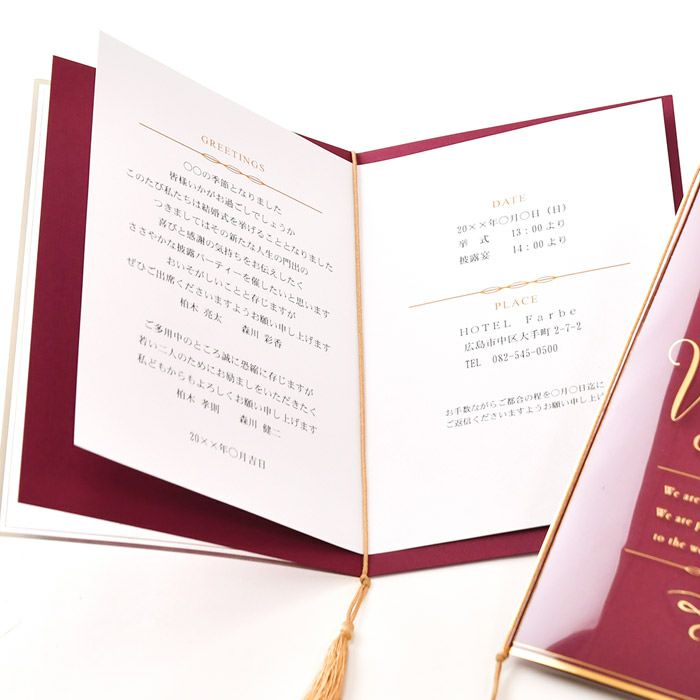 GREETINGS
〇〇の季節となりました
皆様いかがお過ごしでしょうか
このたび私たちは結婚式を挙げることとなりました
つきましてはその新たな人生の門出の
喜びと感謝の気持ちをお伝えしたく
ささやかな披露パーティーを催したいと思います
おいそがしいことと存じますが
ぜひご出席くださいますようお願い申し上げます
柏木 亮太 森川 彩香
ご多用中のところ誠に恐縮に存じますが
若い二人のためにお励ましをいただきたく
私どもからもよろしくお願い申し上げます
柏木 孝則 森川 健二
20××年〇月吉日
DATE
20××年〇月〇日（日）
挙 式 13：00より
披露宴 14：00より
PLACE
HOTEL Farbe
広島市中区大手町2-7-2
TEL 082-545-0500
お手数ながらご都合の程を〇月〇日迄に
ご返信くださいますようお願い申し上げ
We are
We are
to the